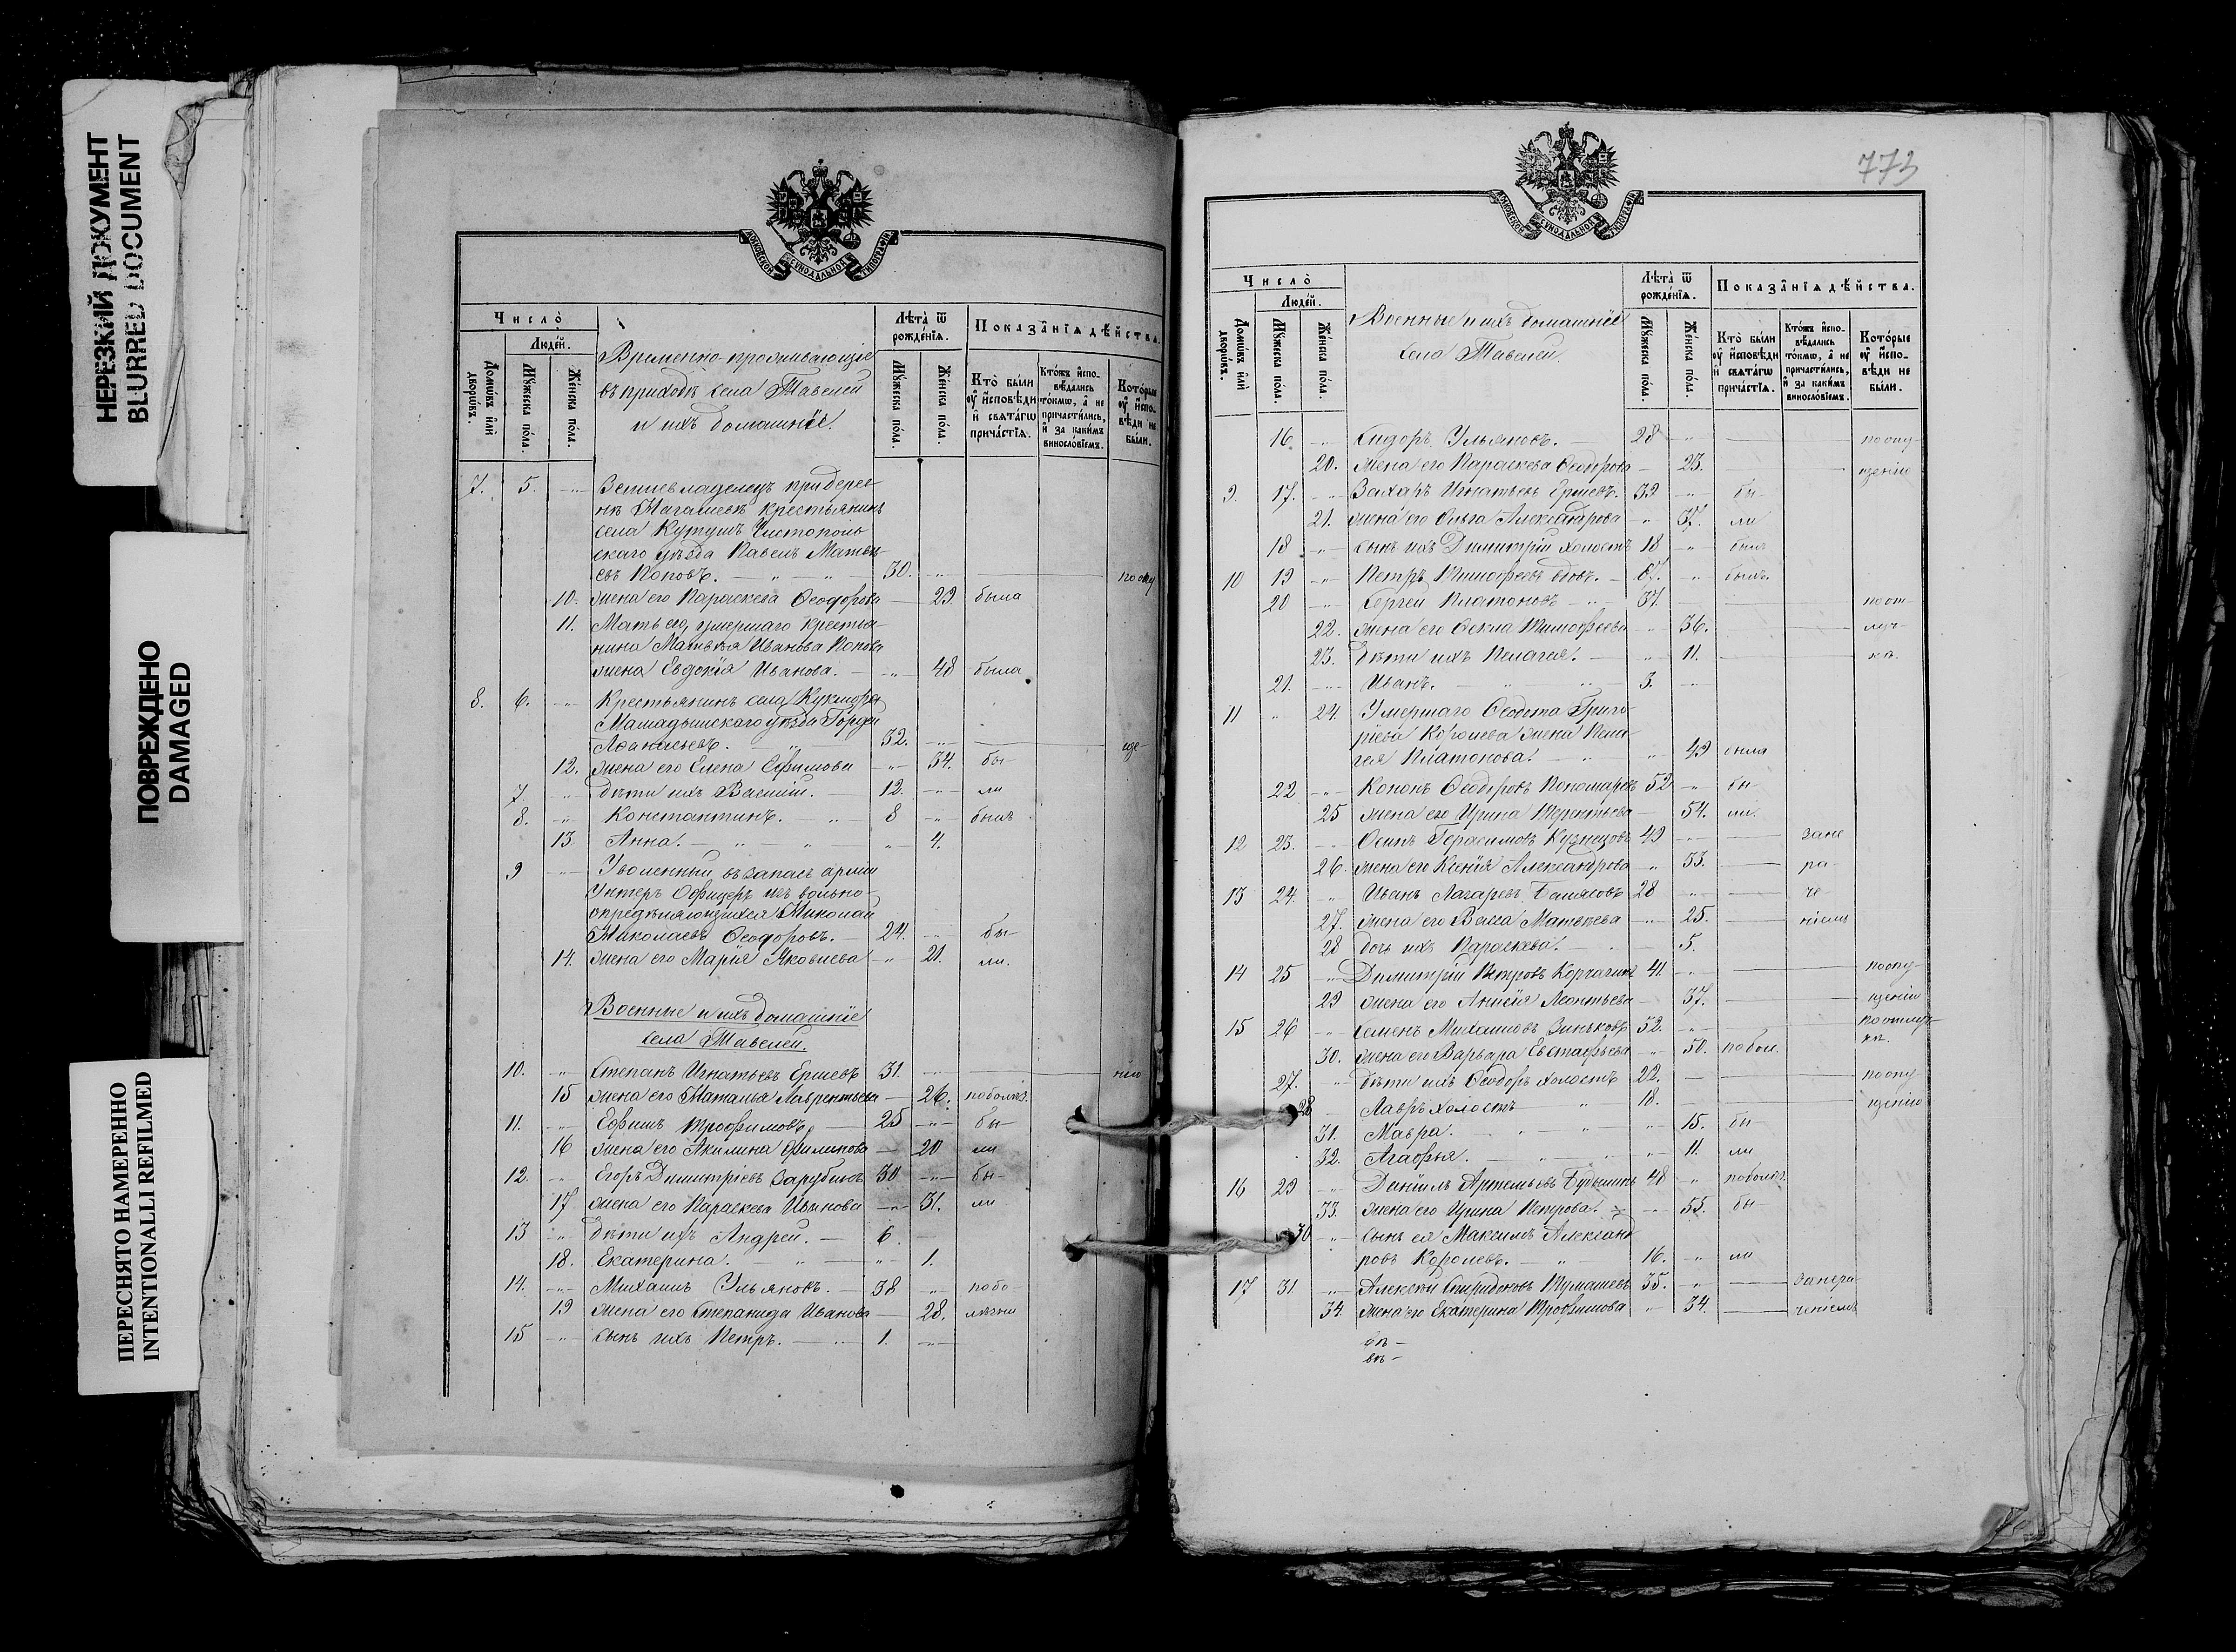 НЕРЕЗКИЙ ДОКУМЕНТ
BLURRED DOCUMENT
ПОВРЕЖДЕНО
DAMAGED
ПЕРЕСНЯТО НАМЕРЕННО
INTENTIONALLI REFILMED
МОСКОВСКОЙ СУНОДАЛЬНОЙ ТИПОГРАФІИ
Число̀
Людей.
Домѡвъ и҆лѝ дворѡвъ.
Мꙋжеска по́ла.
Же́нска по́ла.
Временно-проживающіе
въ приходѣ села Тавелей
и ихъ домашніе.
Лѣта̀ ѿ рождéнїѧ.
Мꙋжеска по́ла.
Же́нска по́ла.
Показа̑нїѧ дѣ́йства.
Кто̀ бы́ли оу҆ и҆сповѣди и҆ свѧта́гѡ прича́стїѧ.
Кто́жъ и҆спо-вѣдались то́кмѡ, а҆ не причасти́лись, и҆ за каки́мъ винословїемъ.
Кото́рые оу҆ и҆спо-вѣди не бы́ли.
7. 5. Землевладелецъ при дерев-
нѣ крестьянинъ
села Кутушъ Чистополь-
скаго уѣзда Павелъ Матвѣ-
евъ Поповъ. 30. по опу
10. жена его Параскева Ѳеодорова 29. была
11. Мать его, умершаго крестья-
нина Матвѣя Иванова Попова
жена Евдокія Иванова. 48 была
8. 6. Крестьянинъ села Кукмора
Мамадышскаго уѣзда Гордей
Аѳанасьевъ. 32. ще-
12. жена его Елена Ефимова 34. бы-
7. дѣти ихъ Василій. 12. ли
8. Константинъ. 8 былъ
13. Анна. 4.
9 Уволенный въ запасъ арміи
Унтеръ Офицеръ изъ вольно-
опредѣляющихся Николай
Николаевъ Ѳеодоровъ. 24. бы-
14. жена его Марія Яковлева 21. ли.
Военные и ихъ домашніе
села Тавелей.
10. Степанъ Игнатьевъ Ершевъ 31. нію
15 жена его Наталья Лаврентьева 26. по болѣз.
11. Ефимъ Трофимовъ, 25 бы-
16 жена его Акилина Филипова 20 ли
12. Егоръ Димитріевъ Зарубинъ 30 бы-
17 жена его Параскева Иванова 31. ли
13 Дѣти ихъ Андрей. 6.
18. Екатерина. 1.
14. Михаилъ Ульяновъ. 38 по бо-
19 жена его Степанида Иванова 28. лѣзни
15 сынъ ихъ Петръ. 1.
773
МОСКОВСКОЙ СУНОДАЛЬНОЙ ТИПОГРАФІИ
Число̀
Людей.
Домѡвъ и҆лѝ дворѡвъ.
Мꙋжеска по́ла.
Же́нска по́ла.
Военные и ихъ домашніе
села Тавелей.
Лѣта̀ ѿ рождéнїѧ.
Мꙋжеска по́ла.
Же́нска по́ла.
Показа̑нїѧ дѣ́йства.
Кто̀ бы́ли оу҆ и҆сповѣди и҆ свѧта́гѡ прича́стїѧ.
Кто́жъ и҆спо-вѣдались то́кмѡ, а҆ не причасти́лись, и҆ за каки́мъ винословїемъ.
Кото́рые оу҆ и҆спо-вѣди не бы́ли.
16. Сидоръ Ульяновъ. 28 по опу-
20. жена его Параскева Ѳеодорова 23. щенію
9. 17. Захаръ Игнатьевъ Ершевъ. 39 бы-
21. жена его Ольга Александрова 37. ли
18 сынъ ихъ Димитрій холостъ 18 былъ
10 19 Петръ Тимофеевъ вдовъ. 67. былъ.
20 Сергей Платоновъ 37. по от-
22. жена его Ѳекла Тимофеева 36. луч-
23. Дѣти ихъ Пелагея. 11. кѣ.
21. Иванъ. 3.
11 24. Умершаго Ѳеодота Григо-
ріева Королева жена Пела-
гея Платонова. 49 была
22 Кононъ Ѳеодоровъ Пономаревъ 52 бы-
25 жена его Ирина Терентьева 54. ли.
12 23. Осипъ Герасимовъ Кузнецовъ 49 за не
26. жена его Ксенія Александрова 53. ра-
13 24. Иванъ Лазаревъ 28 че-
27. жена его Васса Матвѣева 25. ніемъ
28 дочь ихъ Параскева. 5.
14 25 Димитрій Петровъ Корчагинъ 41. по опу-
29 жена его Анисія Леонтьева 37. щенію
15 26 Семенъ Михаиловъ Зиньковъ 52. по отлуч-
кѣ.
30. жена его Варвара Евстафьева 50. по бол.
27. дѣти ихъ Ѳеодоръ холостъ 22. по опу-
28 Лавръ холостъ 18. щенію
31. Мавра. 15. бы-
32. Агафья. 11. ли
16 29 Даніилъ Артемьевъ 48 по болѣз.
33. жена его Ирина Петрова. 55. бы-
30 сынъ ея Максимъ Александ
ровъ Королевъ. 16. ли
17 31 Алексѣй Спиридоновъ Тумашевъ 35. за нера-
34 жена его Екатерина Трофимова 34. ченіемъ